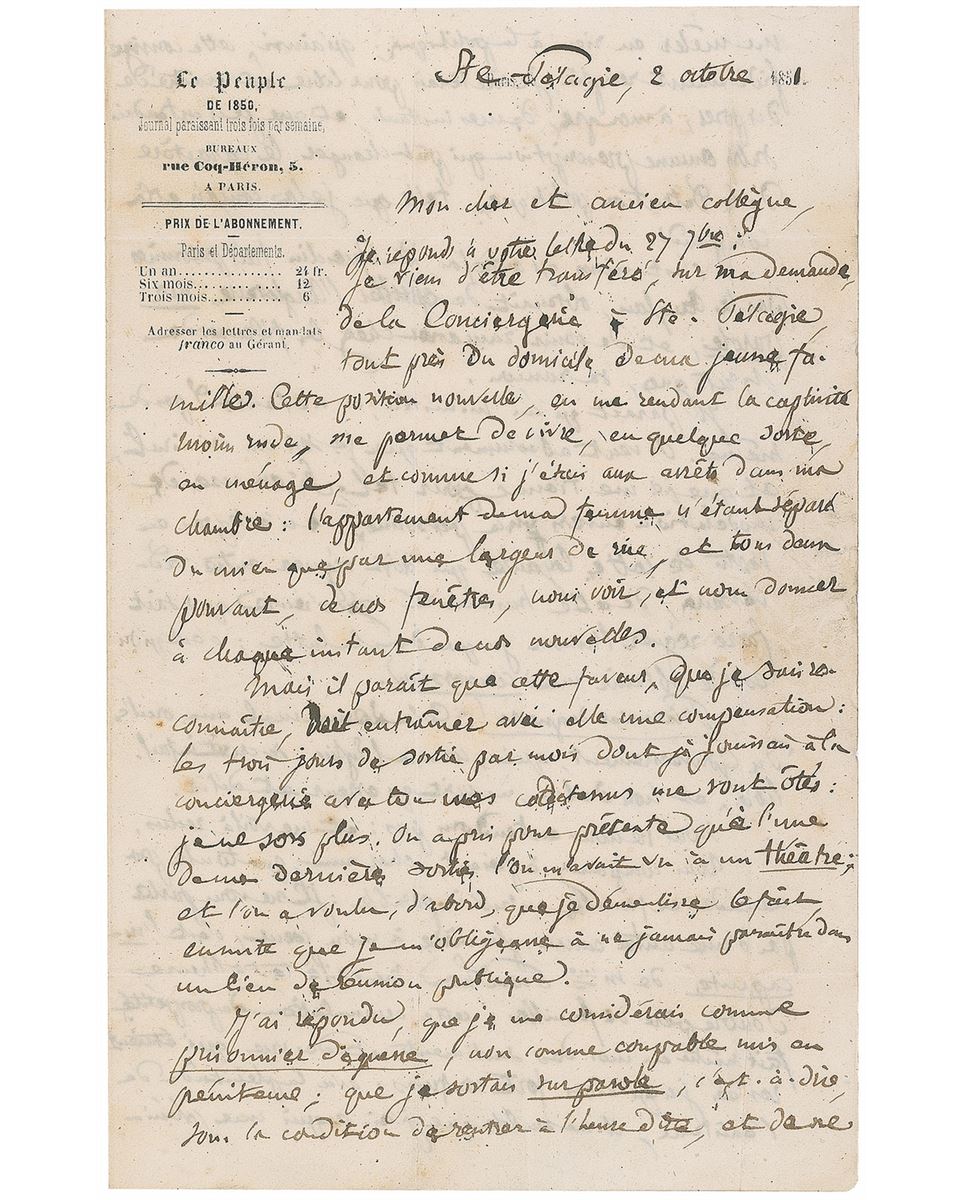 Le Peuple
DE 1850,
Journal paraissant trois fois par semaine,
BUREAUX
rue Coq-Héron, 5.
A PARIS.
PRIX DE L'ABONNEMENT.
Paris et Départements.
Un an............... 24 fr.
Six mois............. 12
Trois mois........... 6
Adresser les lettres et mandats
franco au Gérant.
Ste-Pélagie, 2 octobre 1851.
Mon cher et ancien collègue,
Je réponds à votre lettre du 27 7bre.
Je viens d'être transféré, sur ma demande,
de la Conciergerie à Ste-Pélagie,
tout près du domicile de ma jeune fa-
mille. Cette position nouvelle, en me rendant la captivité
moins rude, me permet de vivre, en quelque sorte,
en ménage, et comme si j'étais aux arrêts dans ma
chambre : l'appartement de ma femme n'étant séparé
du mien que par une largeur de rue, et tous deux
pouvant, de nos fenêtres, nous voir, et nous donner
à chaque instant de nos nouvelles.
Mais il paraît que cette faveur, que je sais re-
connaître, doit entraîner avec elle une compensation :
les trois jours de sortie par mois dont je jouissais à la
conciergerie avec tous mes codétenus me sont ôtés :
je ne sors plus. On a pris pour prétexte qu'à l'une
de mes dernières sorties l'on m'avait vu à un théâtre ;
et l'on a voulu, d'abord, que je démentisse le fait
ensuite que je m'obligeasse à ne jamais paraître dans
un lieu de réunion publique.
J'ai répondu, que je me considérais comme
prisonnier de guerre, non comme coupable mis en
pénitence ; que je sortais sur parole, c'est-à-dire,
sous la condition de rentrer à l'heure dite, et de ne